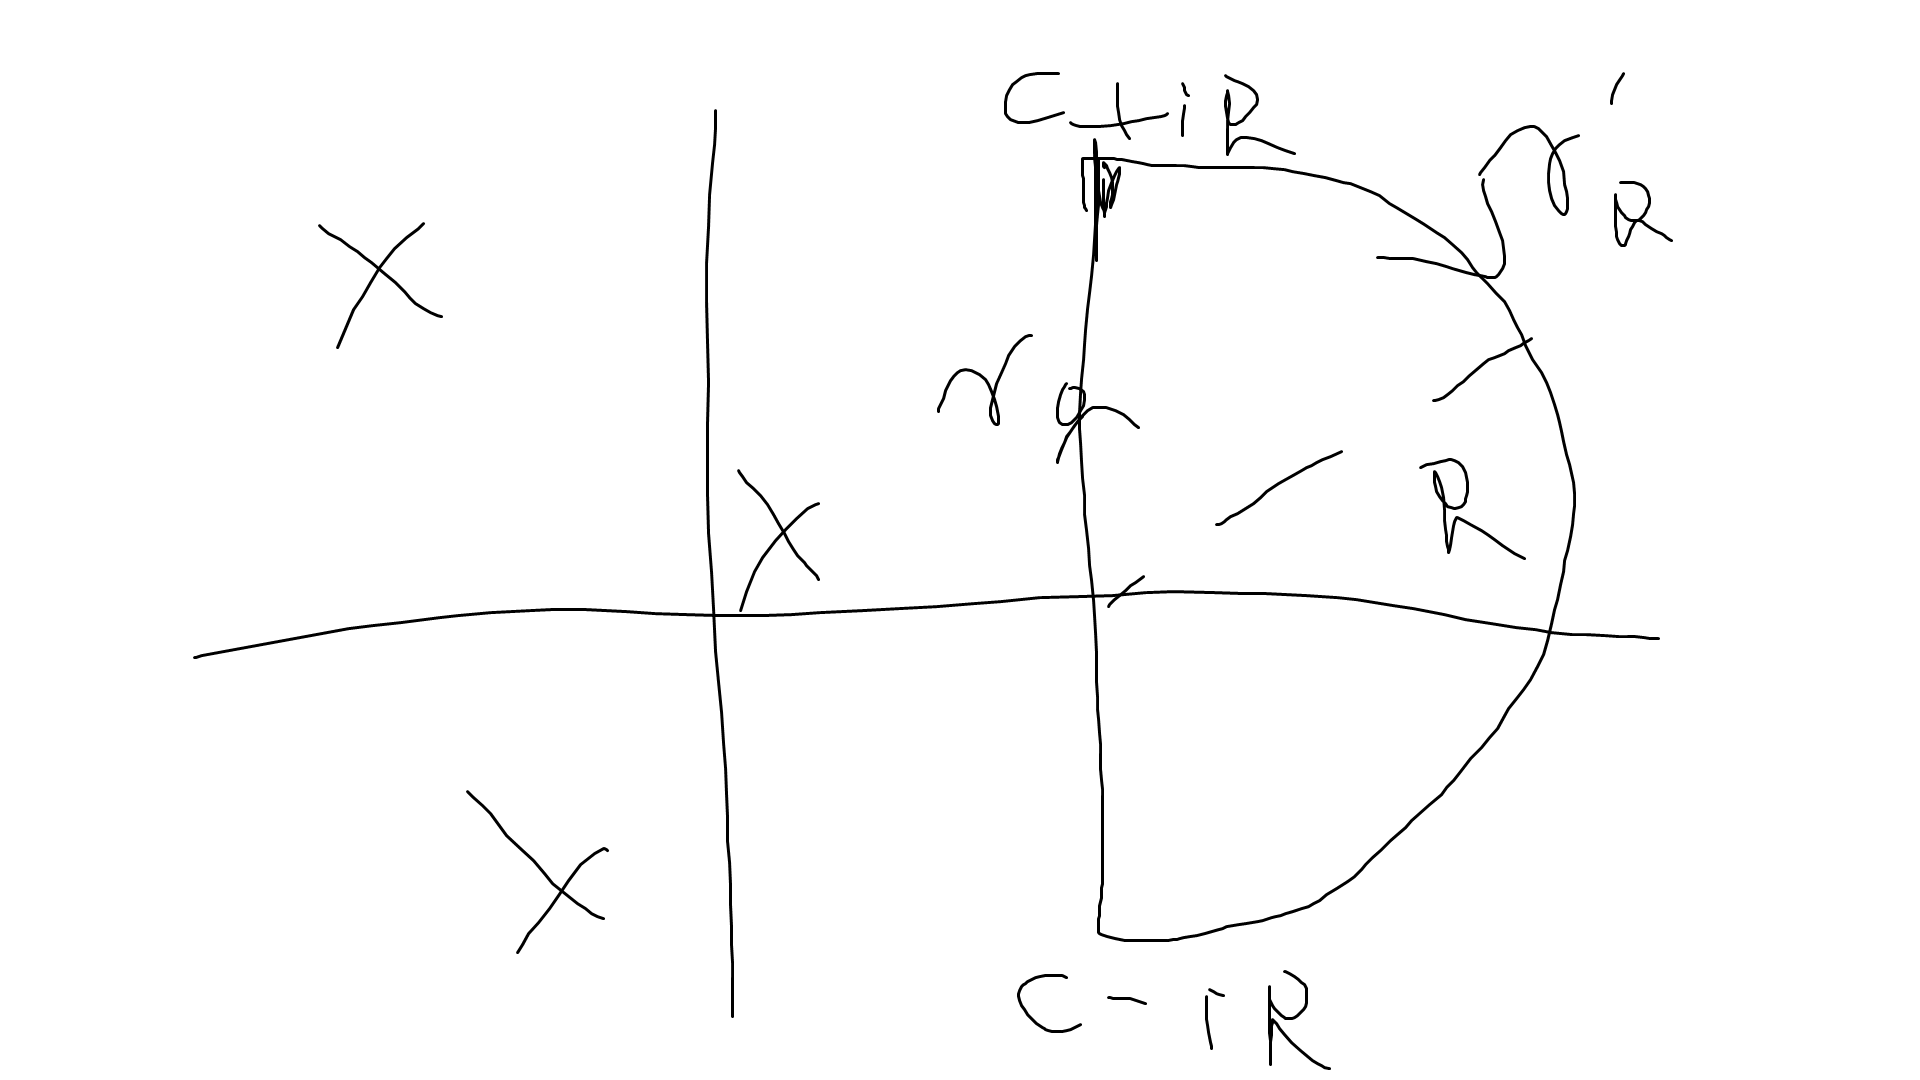 C+iR
γ'R
γR
R
C-iR